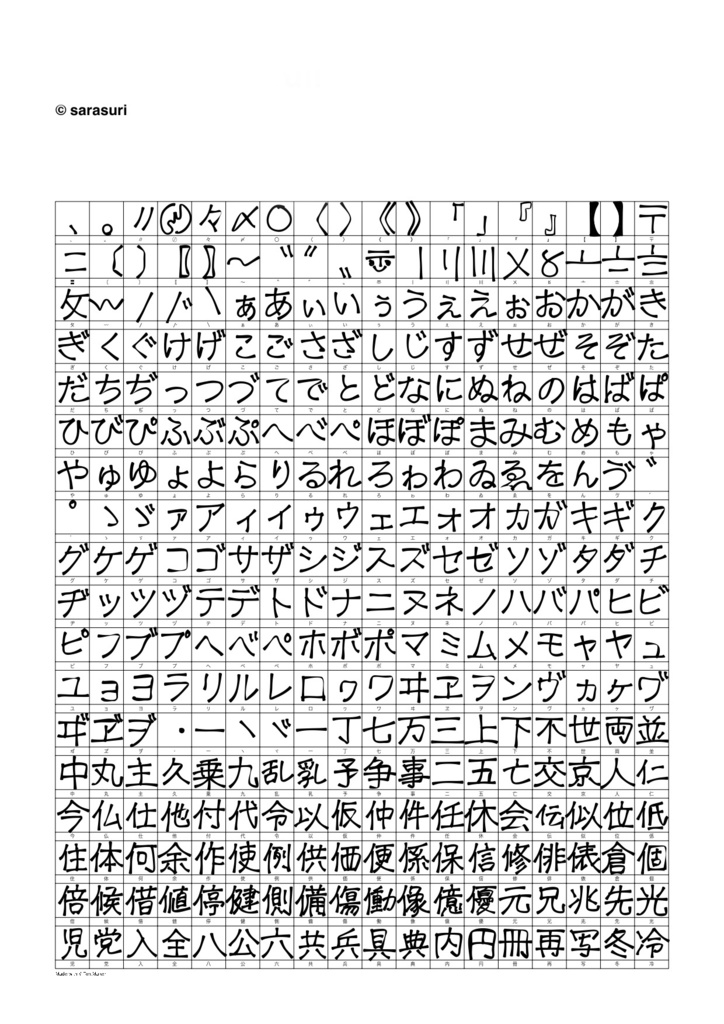 © sarasuri
、。〃〄々〆〇〈〉《》「」『』【】〒
〓〔〕〖〗〜〝〞〟〠〡〢〣〤〥〦〧〨
〩〰〳〴〵ぁあぃいぅうぇえぉおかがき
ぎくぐけげこごさざしじすずせぜそぞた
だちぢっつづてでとどなにぬねのはばぱ
ひびぴふぶぷへべぺほぼぽまみむめもゃ
やゅゆょよらりるれろゎわゐゑをんゔ゛
゜ゝゞァアィイゥウェエォオカガキギク
グケゲコゴサザシジスズセゼソゾタダチ
ヂッツヅテデトドナニヌネノハバパヒビ
ピフブプヘベペホボポマミムメモャヤュ
ユョヨラリルレロヮワヰヱヲンヴヵヶヷ
ヸヹヺ・ーヽヾ一丁七万三上下不世両並
中丸主久乗九乱乳予争事二五亡交京人仁
今仏仕他付代令以仮仲件任休会伝似位低
住体何余作使例供価便係保信修俳俵倉個
倍候借値停健側備傷働像億優元兄兆先光
児党入全八公六共兵具典内円冊再写冬冷